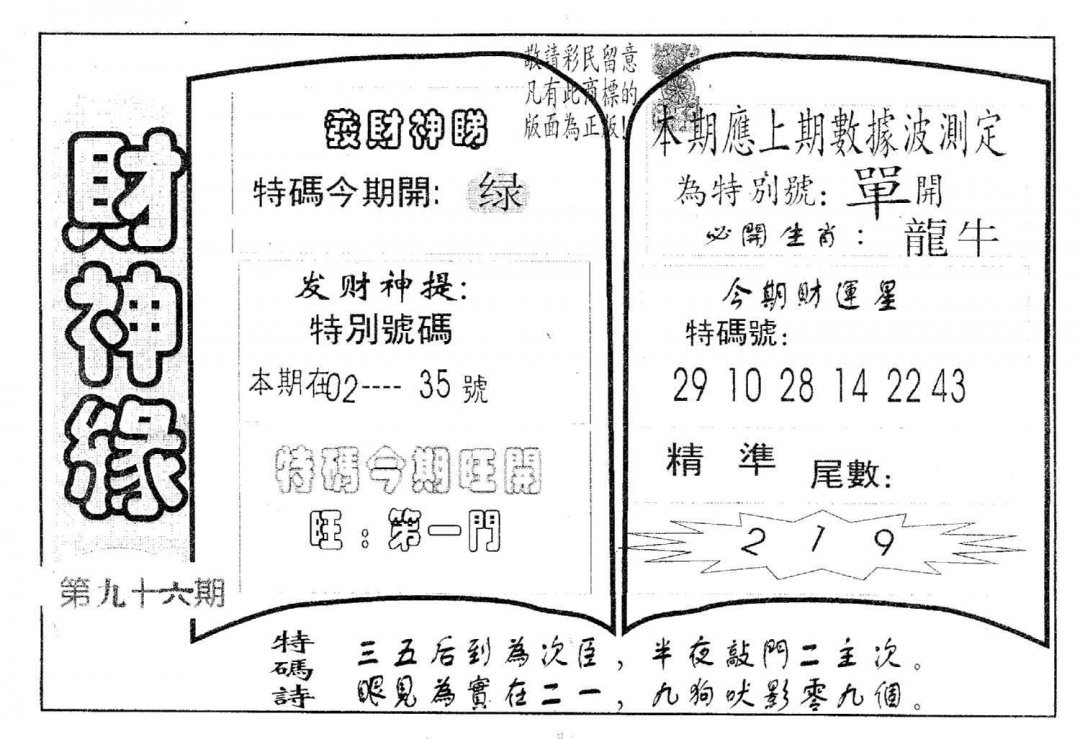 財神緣
第九十六期
敬請彩民留意
凡有此商標的
版面為正版!
發財神睇
特碼今期開: 绿
发财神提:
特別號碼
本期在02---- 35 號
特碼今期旺開
旺:第一門
本期應上期數據波測定
為特別號: 單開
必開生肖: 龍牛
今期財運星
特碼號:
29 10 28 14 22 43
精準 尾數:
2 1 9
特碼詩
三五后到為次臣,半夜敲門二主次。
眼見為實在二一,九狗吠影零九個。